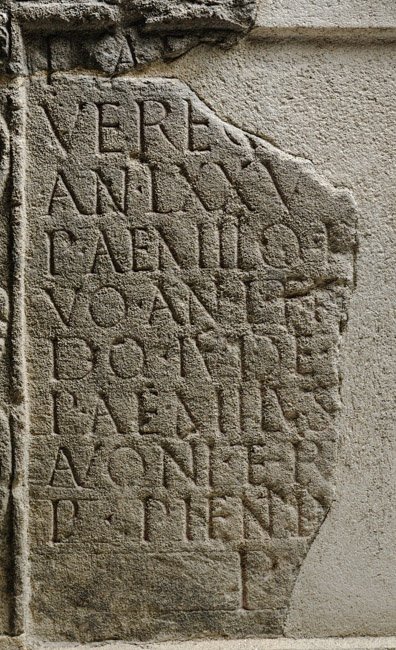 VERE
AN·LXXV·
P·AEMILIO·F
VO·AN·L
DO·IVDE
P·AEMILIVS
AVONI·ER
P·PIENT
P